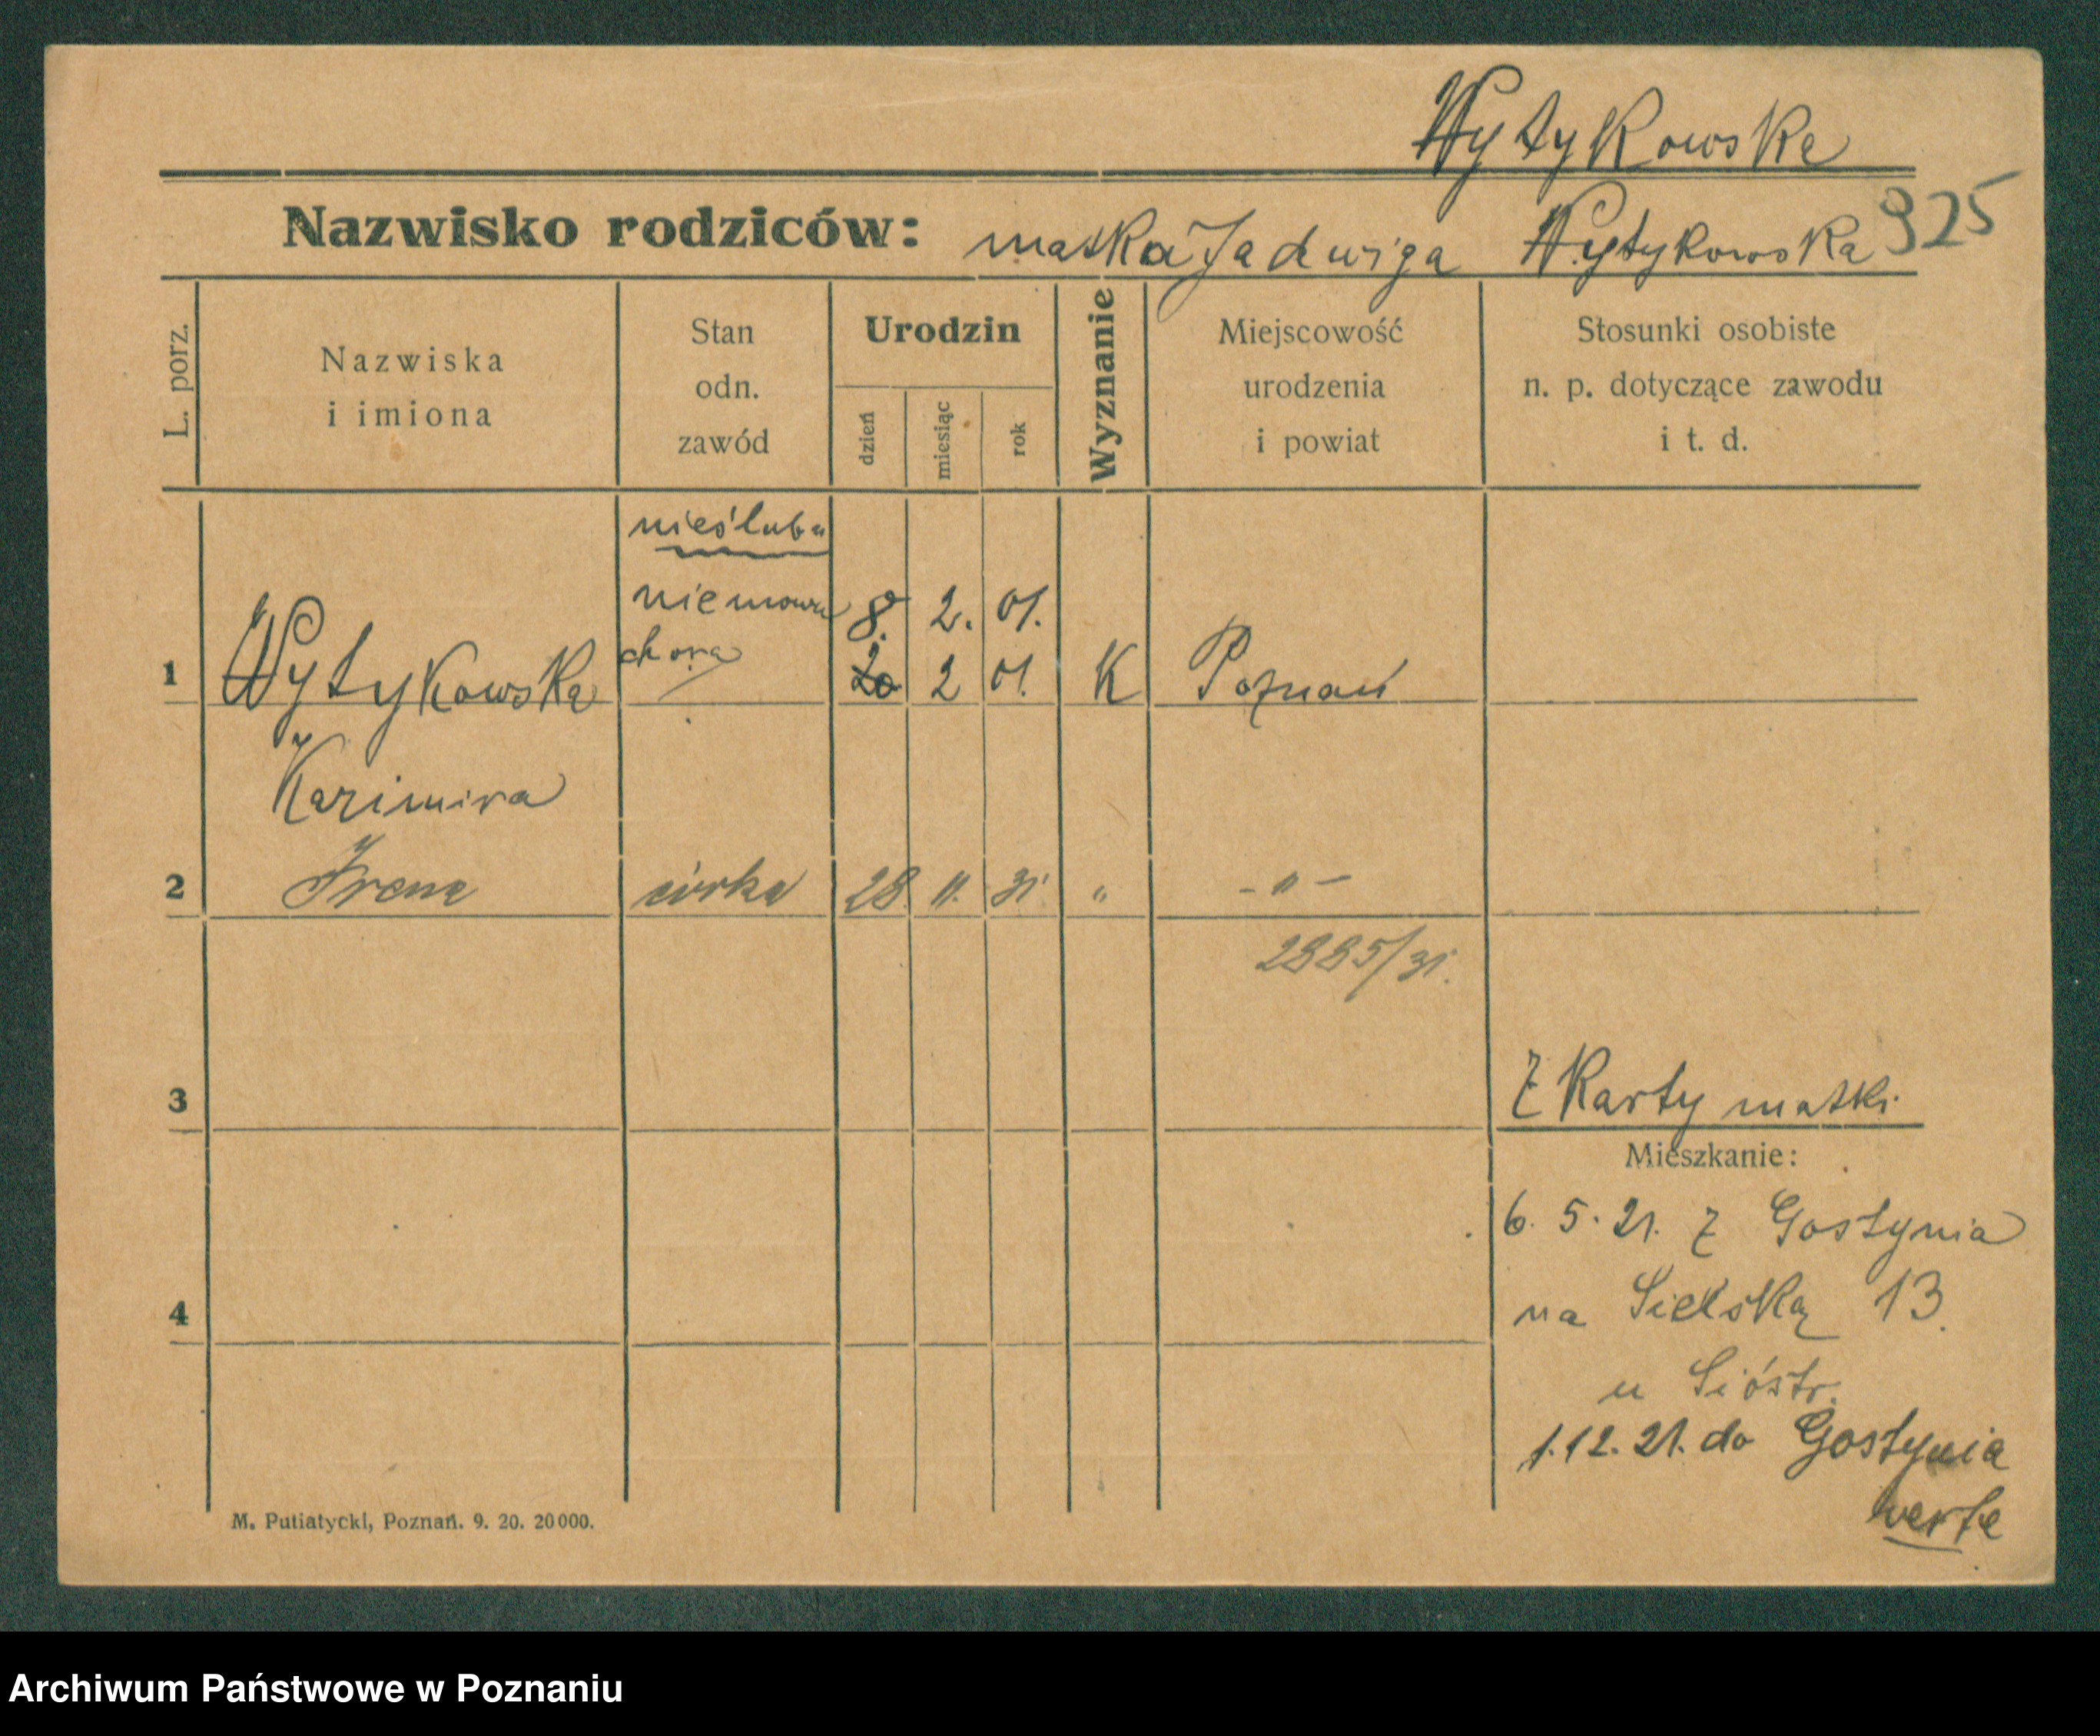 Wytykowska
Nazwisko rodziców: matka Jadwiga Wytykowska 925
L. porz.
Nazwiska i imiona
Stan odn. zawód
Urodzin
dzień
miesiąc
rok
Wyznanie
Miejscowość urodzenia i powiat
Stosunki osobiste n. p. dotyczące zawodu i t. d.
nieślubn
niemowa 8. 2. 01.
chora
1 Wytykowska 2 01. K Poznań
Kazimira
2 Irena córka 28. 11. 31. " - " -
2885/31.
3
Z Karty matki
Mieszkanie:
6. 5. 21. z Gostynia
4
na Sielską 13.
u Sióstr.
1.12.21. do Gostynia
verte
M. Putiatycki, Poznań. 9. 20. 20000.
Archiwum Państwowe w Poznaniu